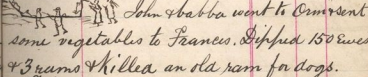 John & babba went to Orm & sent
some vegetables to Frances. Dipped 150 Ewes
& 3 rams & killed an old ram for dogs.